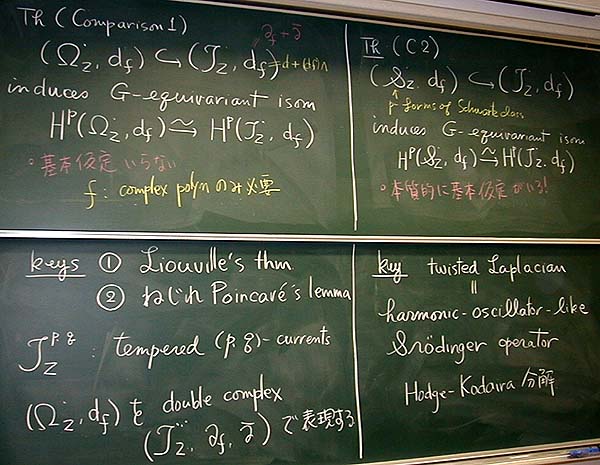 Th (Comparison 1)
∂_f + ∂̄
(Ω_Z^·, d_f) ↪ (J_Z^·, d_f) = d + (df)∧
induces G-equivariant isom
H^p(Ω_Z^·, d_f) ≃ H^p(J_Z^·, d_f)
・基本仮定いらない
f : complex polyn のみ必要
Th (C2)
(S_Z^·, d_f) ↪ (J_Z^·, d_f)
↑ p forms of Schwartz class
induces G-equivariant isom
H^p(S_Z^·, d_f) ≃ H^p(J_Z^·, d_f)
・本質的に基本仮定がいる!
keys ① Liouville's thm
② ねじれ Poincaré's lemma
J_Z^{p,q} : tempered (p,q)-currents
(Ω_Z^·, d_f) を double complex
(J_Z^{··}, ∂_f, ∂̄) で表現する
key twisted Laplacian
=
harmonic-oscillator-like
Srödinger operator
Hodge-Kodaira 分解